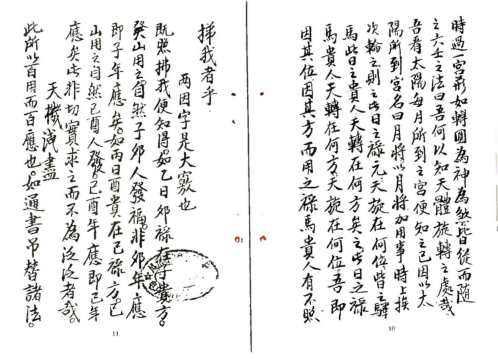 時過一宮形如轉圓為神為煞皆從而隨
之六壬之法曰吾何以知天體旋轉之處哉
吾看太陽每月所到之宮便知之已因以太
陽所到宮名曰月將以月將加用事時上挨
次輪之則之此日之祿元天旋在何位皆之驛
馬此日之貴人天轉在何方矣之此日之祿
馬貴人天轉在何方天旋在何位吾即
因其位因其方而用之祿馬貴人有不照
10
我者乎
兩因字是大竅也
既照我便知得如乙日卯祿在子貴方
癸山用之自然子卯人發福非卯年應
即子年應矣如丙日酉貴在巳祿方巳
山用之自然巳酉人發巳酉年應即巳年
應矣此非切實求之而不為泛泛者哉
天機洩盡
此所以百用而百應也如通書吊替諸法
11